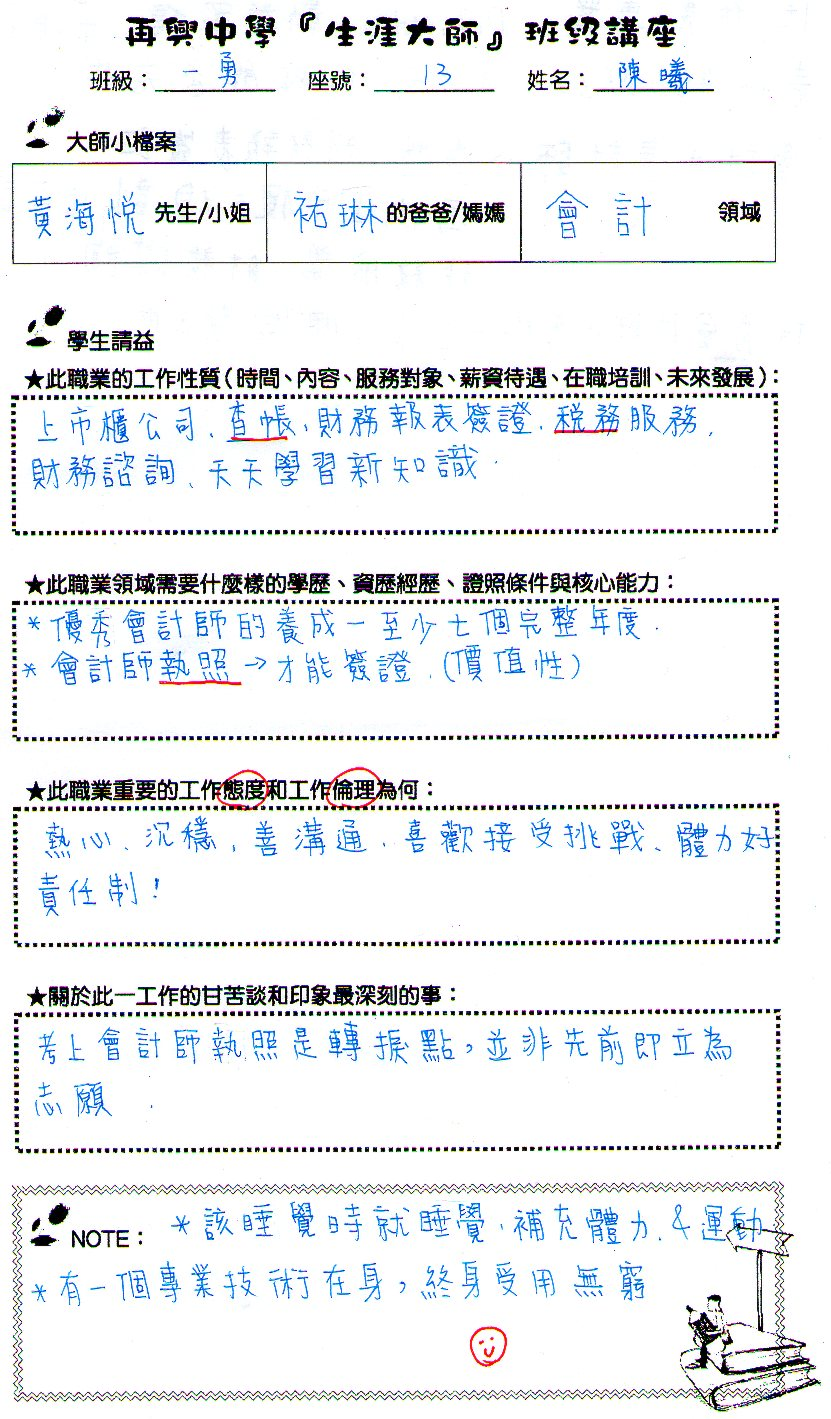 再興中學『生涯大師』班級講座
班級：一勇 座號：13 姓名：陳曦.
大師小檔案
黃海悅 先生/小姐 祐琳 的爸爸/媽媽 會計 領域
學生請益
★此職業的工作性質(時間、內容、服務對象、薪資待遇、在職培訓、未來發展)：
上市櫃公司、查帳、財務報表簽證、稅務服務、
財務諮詢、天天學習新知識.
★此職業領域需要什麼樣的學歷、資歷經歷、證照條件與核心能力：
*優秀會計師的養成－至少七個完整年度.
*會計師執照→才能簽證.(價值性)
★此職業重要的工作態度和工作倫理為何：
熱心、沉穩、善溝通、喜歡接受挑戰、體力好
責任制!
★關於此一工作的甘苦談和印象最深刻的事：
考上會計師執照是轉捩點，並非先前即立為
志願.
NOTE： *該睡覺時就睡覺、補充體力、&運動
*有一個專業技術在身，終身受用無窮